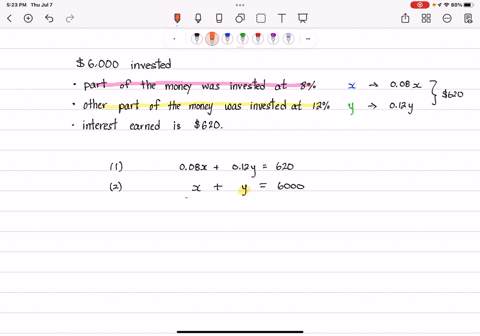 5:23 PM Thu Jul 7
80%
$6,000 invested
• part of the money was invested at 8% x → 0.08x
• other part of the money was invested at 12% y → 0.12y
} $620
• interest earned is $620.
(1) 0.08x + 0.12y = 620
(2) x + y = 6000